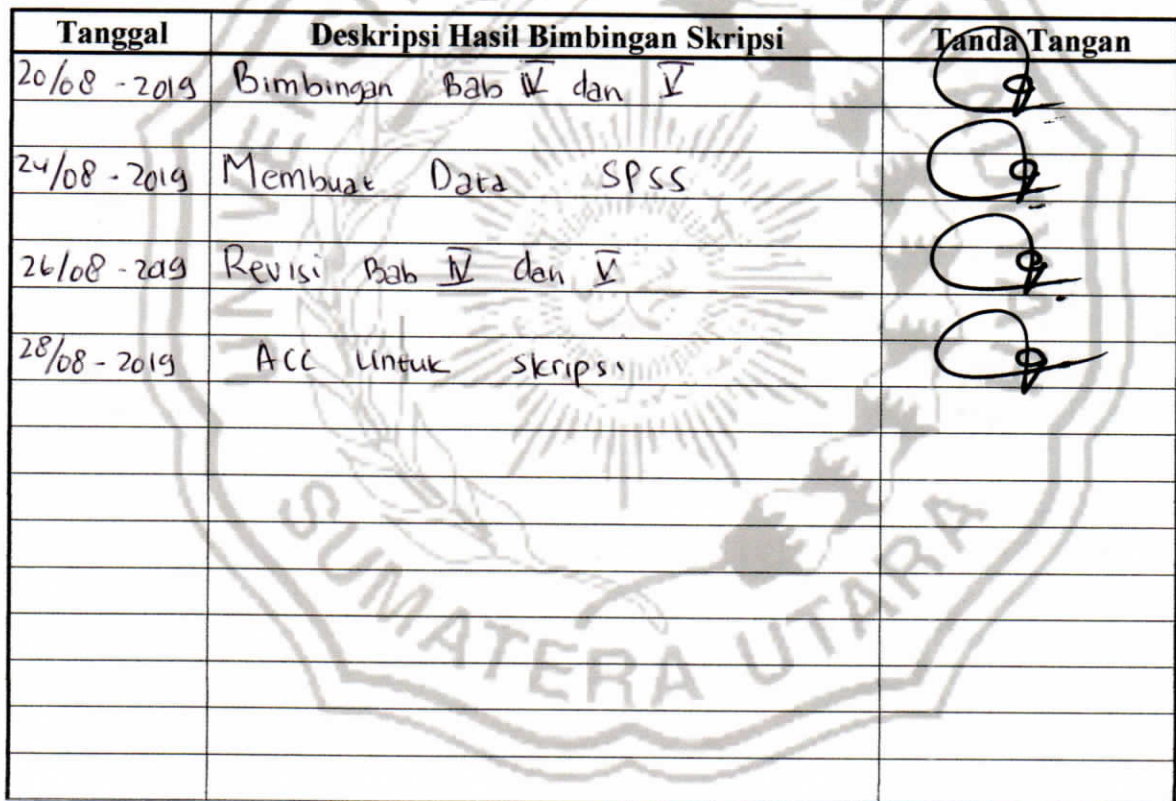 Tanggal Deskripsi Hasil Bimbingan Skripsi Tanda Tangan
20/08 - 2019 Bimbingan Bab IV dan V
24/08 - 2019 Membuat Data SPSS
26/08 - 2019 Revisi Bab IV dan V
28/08 - 2019 ACC Untuk skripsi
SUMATERA UTARA